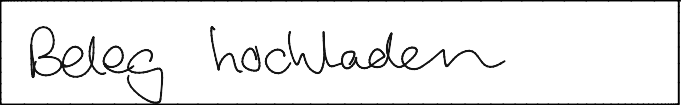 Beleg hochladen